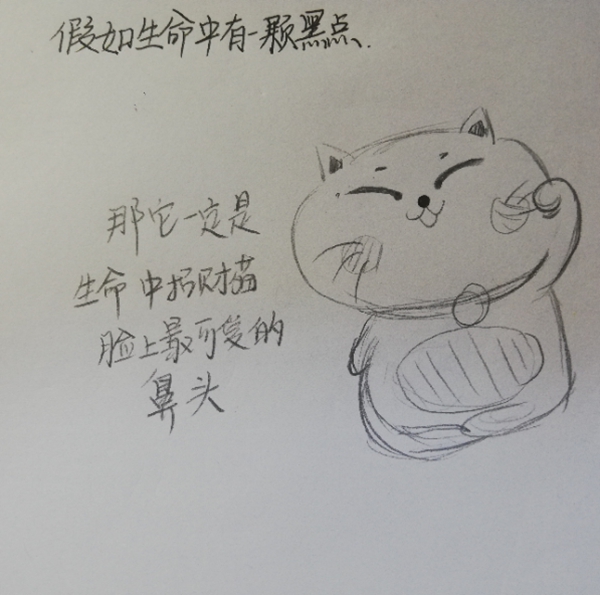 假如生命中有一颗黑点.
那它一定是
生命中招财猫
脸上最可爱的
鼻头